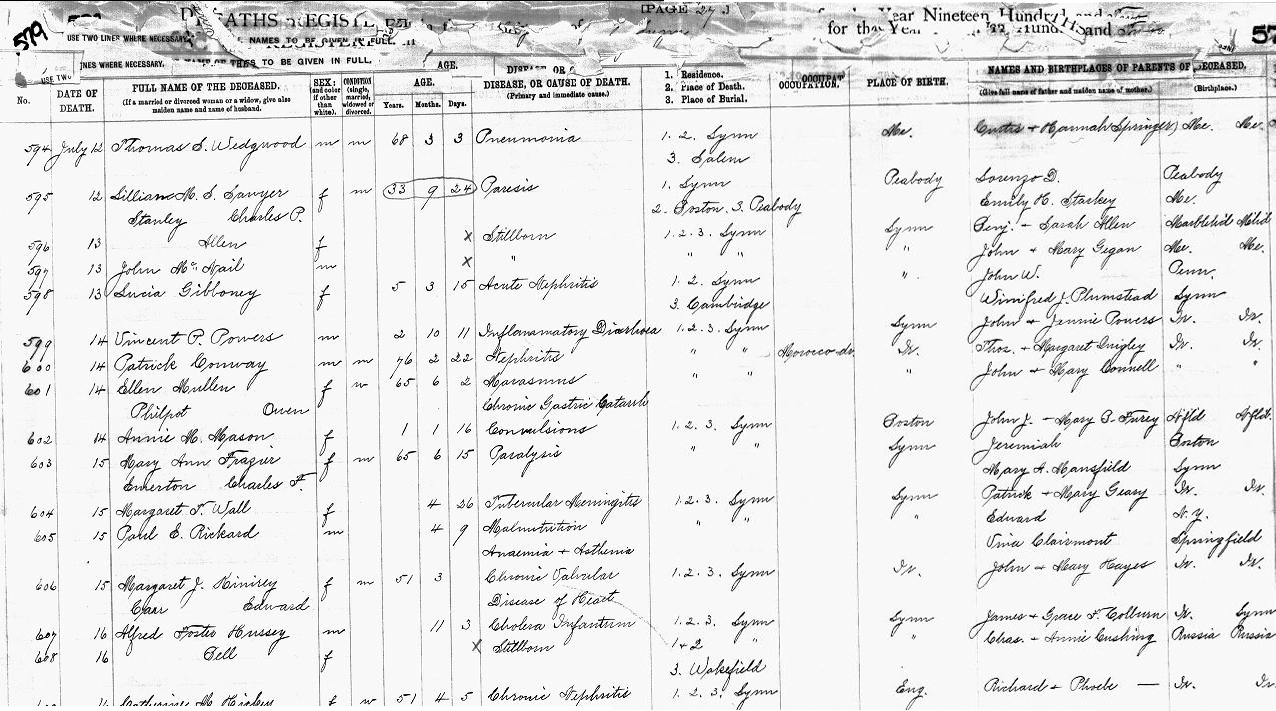 579
[PAGE
USE TWO LINES WHERE NECESSARY.
NAMES TO BE GIVEN IN FULL.
Year Nineteen Hundred and
for the Year
LINES WHERE NECESSARY.
TO BE GIVEN IN FULL.
No. DATE OF DEATH. FULL NAME OF THE DECEASED. (If a married or divorced woman or a widow, give also maiden name and name of husband.) SEX: (and color if other than white). CONDITION (single, married, widowed or divorced). AGE. Years. Months. Days. DISEASE, OR CAUSE OF DEATH. (Primary and immediate cause.) 1. Residence. 2. Place of Death. 3. Place of Burial. OCCUPATION. PLACE OF BIRTH. NAMES AND BIRTHPLACES OF PARENTS OF DECEASED. (Give full name of father and maiden name of mother.) (Birthplace.)
594 July 12 Thomas S. Wedgwood m m 68 3 3 Pneumonia 1. 2. Lynn Me. Curtis + Hannah (Springer) Me. Me.
3. Salem
595 12 Lillian M. S. Sawyer f m 33 9 24 Paresis 1. Lynn Peabody Lorenzo D. Peabody
Stanley Charles P. 2. Boston 3. Peabody Emily H. Starkey Me.
596 13 Allen f x Stillborn 1. 2. 3. Lynn Lynn Benj. + Sarah Allen Marblehd Mblhd
597 13 John McNail m x " " " " John + Mary Gegan Me. Me.
598 13 Lucia Gibboney f 5 3 15 Acute Nephritis 1. 2. Lynn " John W. Penn.
3. Cambridge Winifred J. Plumstead Lynn
599 14 Vincent P. Powers m 2 10 11 Inflammatory Diarrhoea 1. 2. 3. Lynn Lynn John + Jennie Powers Ir. Ir.
600 14 Patrick Conway m m 76 2 22 Nephritis " " Morocco dr. Ir. Thos. + Margaret Quigley Ir. Ir.
601 14 Ellen Mullen f w 65 6 2 Marasmus " " " John + Mary Connell " "
Philpot Owen Chronic Gastric Catarrh
602 14 Annie M. Mason f 1 1 16 Convulsions 1. 2. 3. Lynn Boston John J. - Mary B. Furey Nfld Nfld.
603 15 Mary Ann Frazier f m 65 6 15 Paralysis " " Lynn Jeremiah Boston
Emerton Charles F. Mary A. Mansfield Lynn
604 15 Margaret F. Wall f 4 26 Tubercular Meningitis 1. 2. 3. Lynn Lynn Patrick + Mary Geary Ir. Ir.
605 15 Paul E. Rickard m 4 9 Malnutrition " " " Edward N.Y.
Anaemia + Asthenia Vina Clairmont Springfield
606 15 Margaret J. Kinirey f m 51 3 Chronic Valvular 1. 2. 3. Lynn Ir. John + Mary Hayes Ir. Ir.
Carr Edward Disease of Heart
607 16 Alfred Foster Hussey m 11 3 Cholera Infantum 1. 2. 3. Lynn Lynn James + Grace F. Colburn Ir. Lynn
608 16 Cell f x Stillborn 1 + 2 " " Chas. + Annie Cushing Russia Russia
3. Wakefield
Catherine M. f w 51 4 5 Chronic Nephritis 1. 2. 3. Lynn Eng. Richard + Phoebe — Ir. Ir.